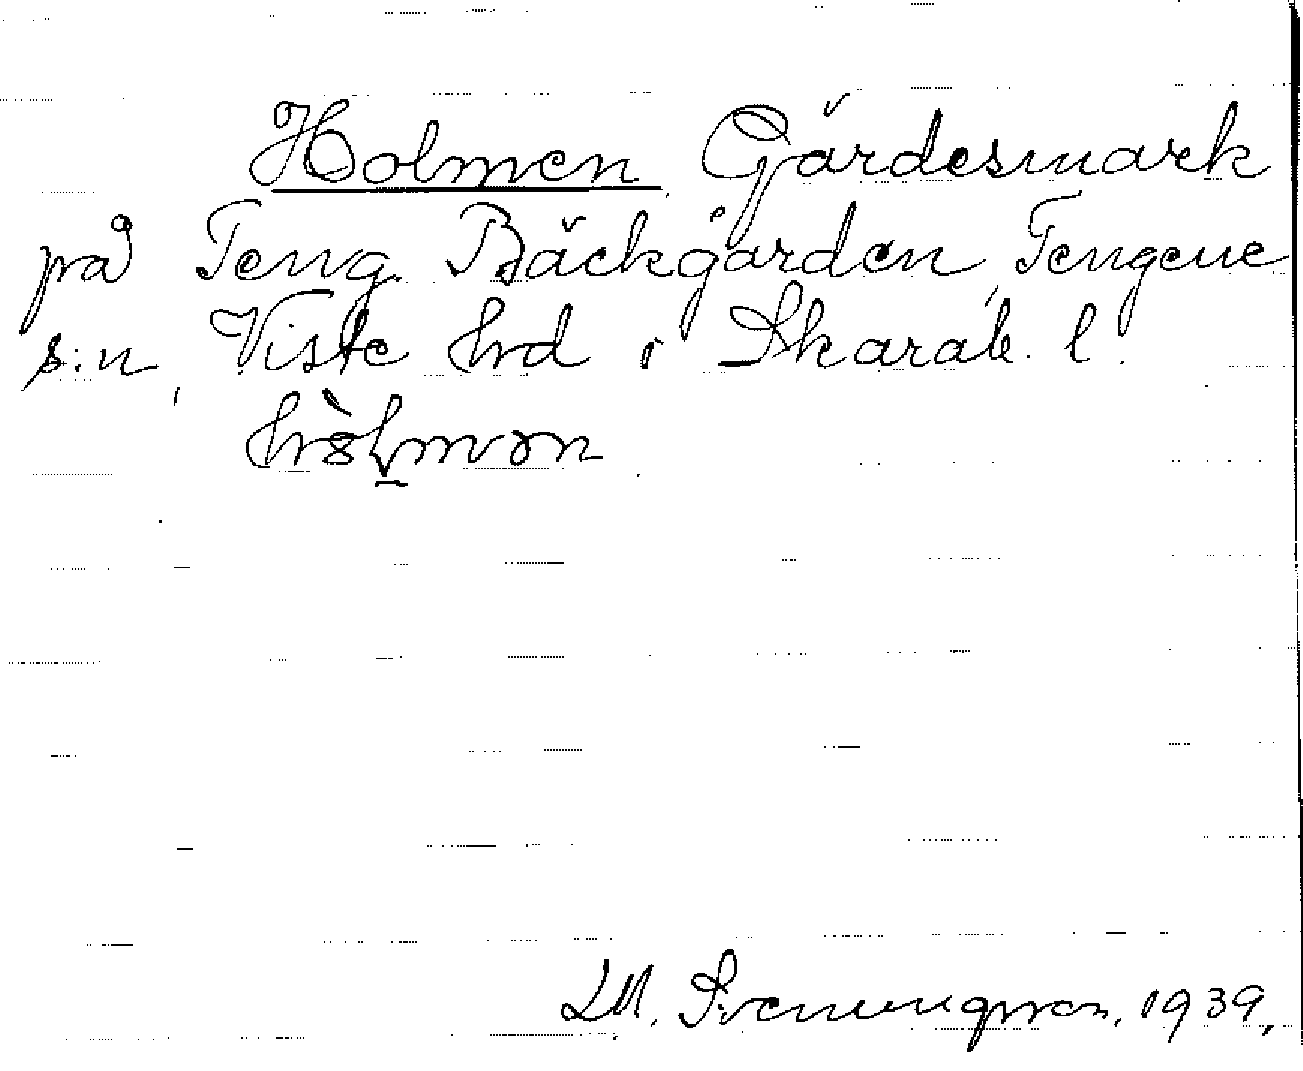 Holmen, Gärdesmark
på Teng. Bäckgården, Tengene
s:n, Viste hrd i Skarab. l.
M. Svenungsson. 1939.